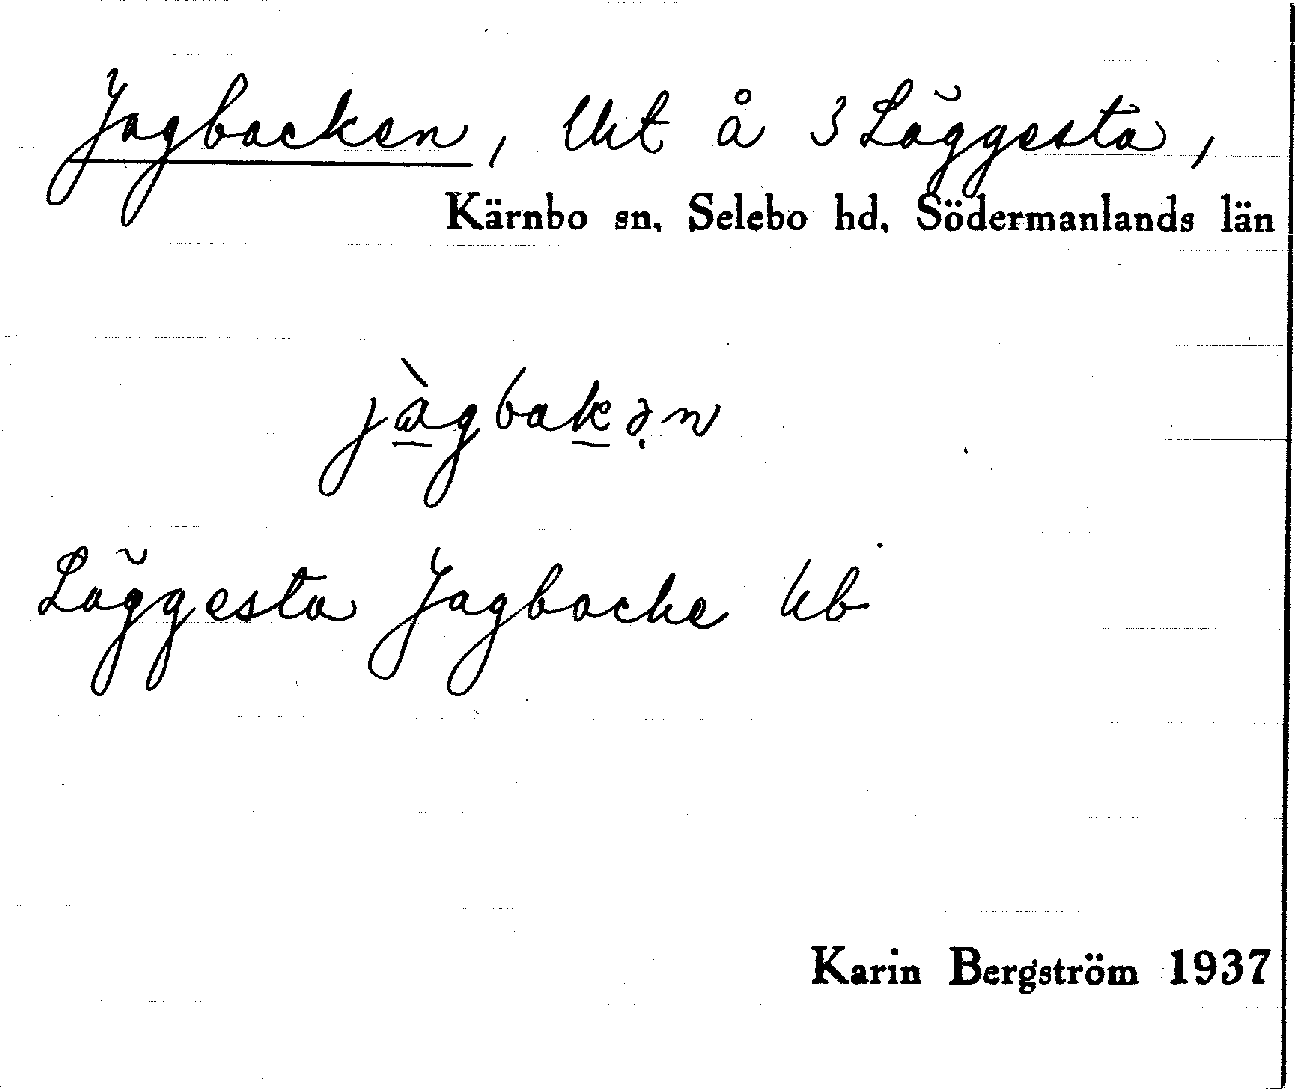 Jagbacken, Ut å 3 Läggesta,
Kärnbo sn, Selebo hd, Södermanlands län
jàgbakə̣n
Läggesta Jagbacke Ub
Karin Bergström 1937